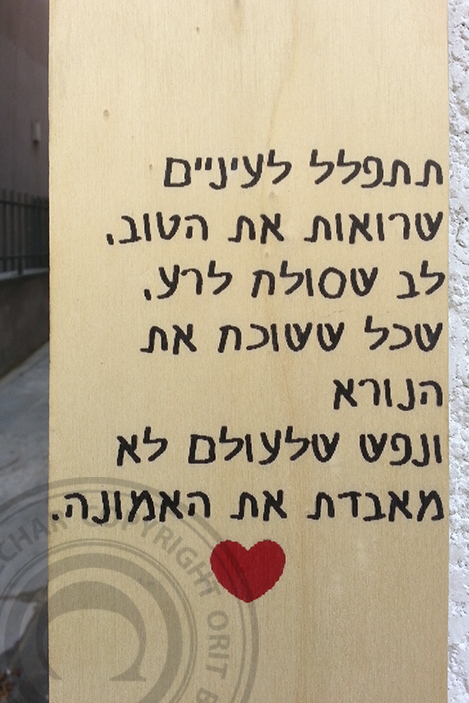 תתפלל לעיניים
שרואות את הטוב,
לב שסולח לרע,
שכל ששוכח את
הנורא
ונפש שלעולם לא
מאבדת את האמונה.
COPYRIGHT ORIT